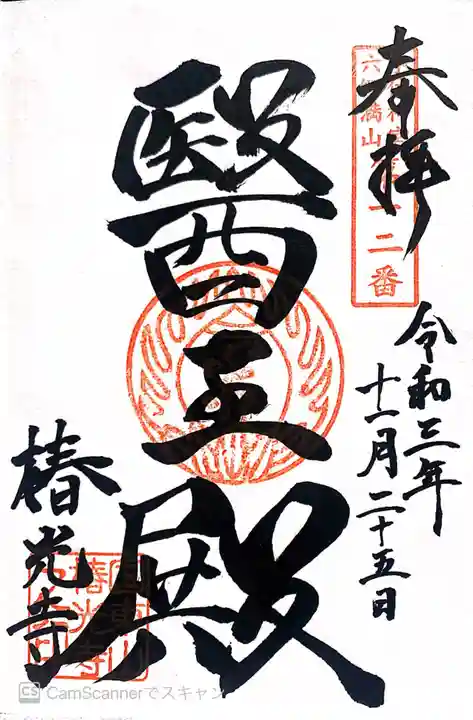 奉拝
六郷満山
十二番
令和三年
十一月二十五日
醫王殿
椿光寺
椿光寺
CS CamScannerでスキャン